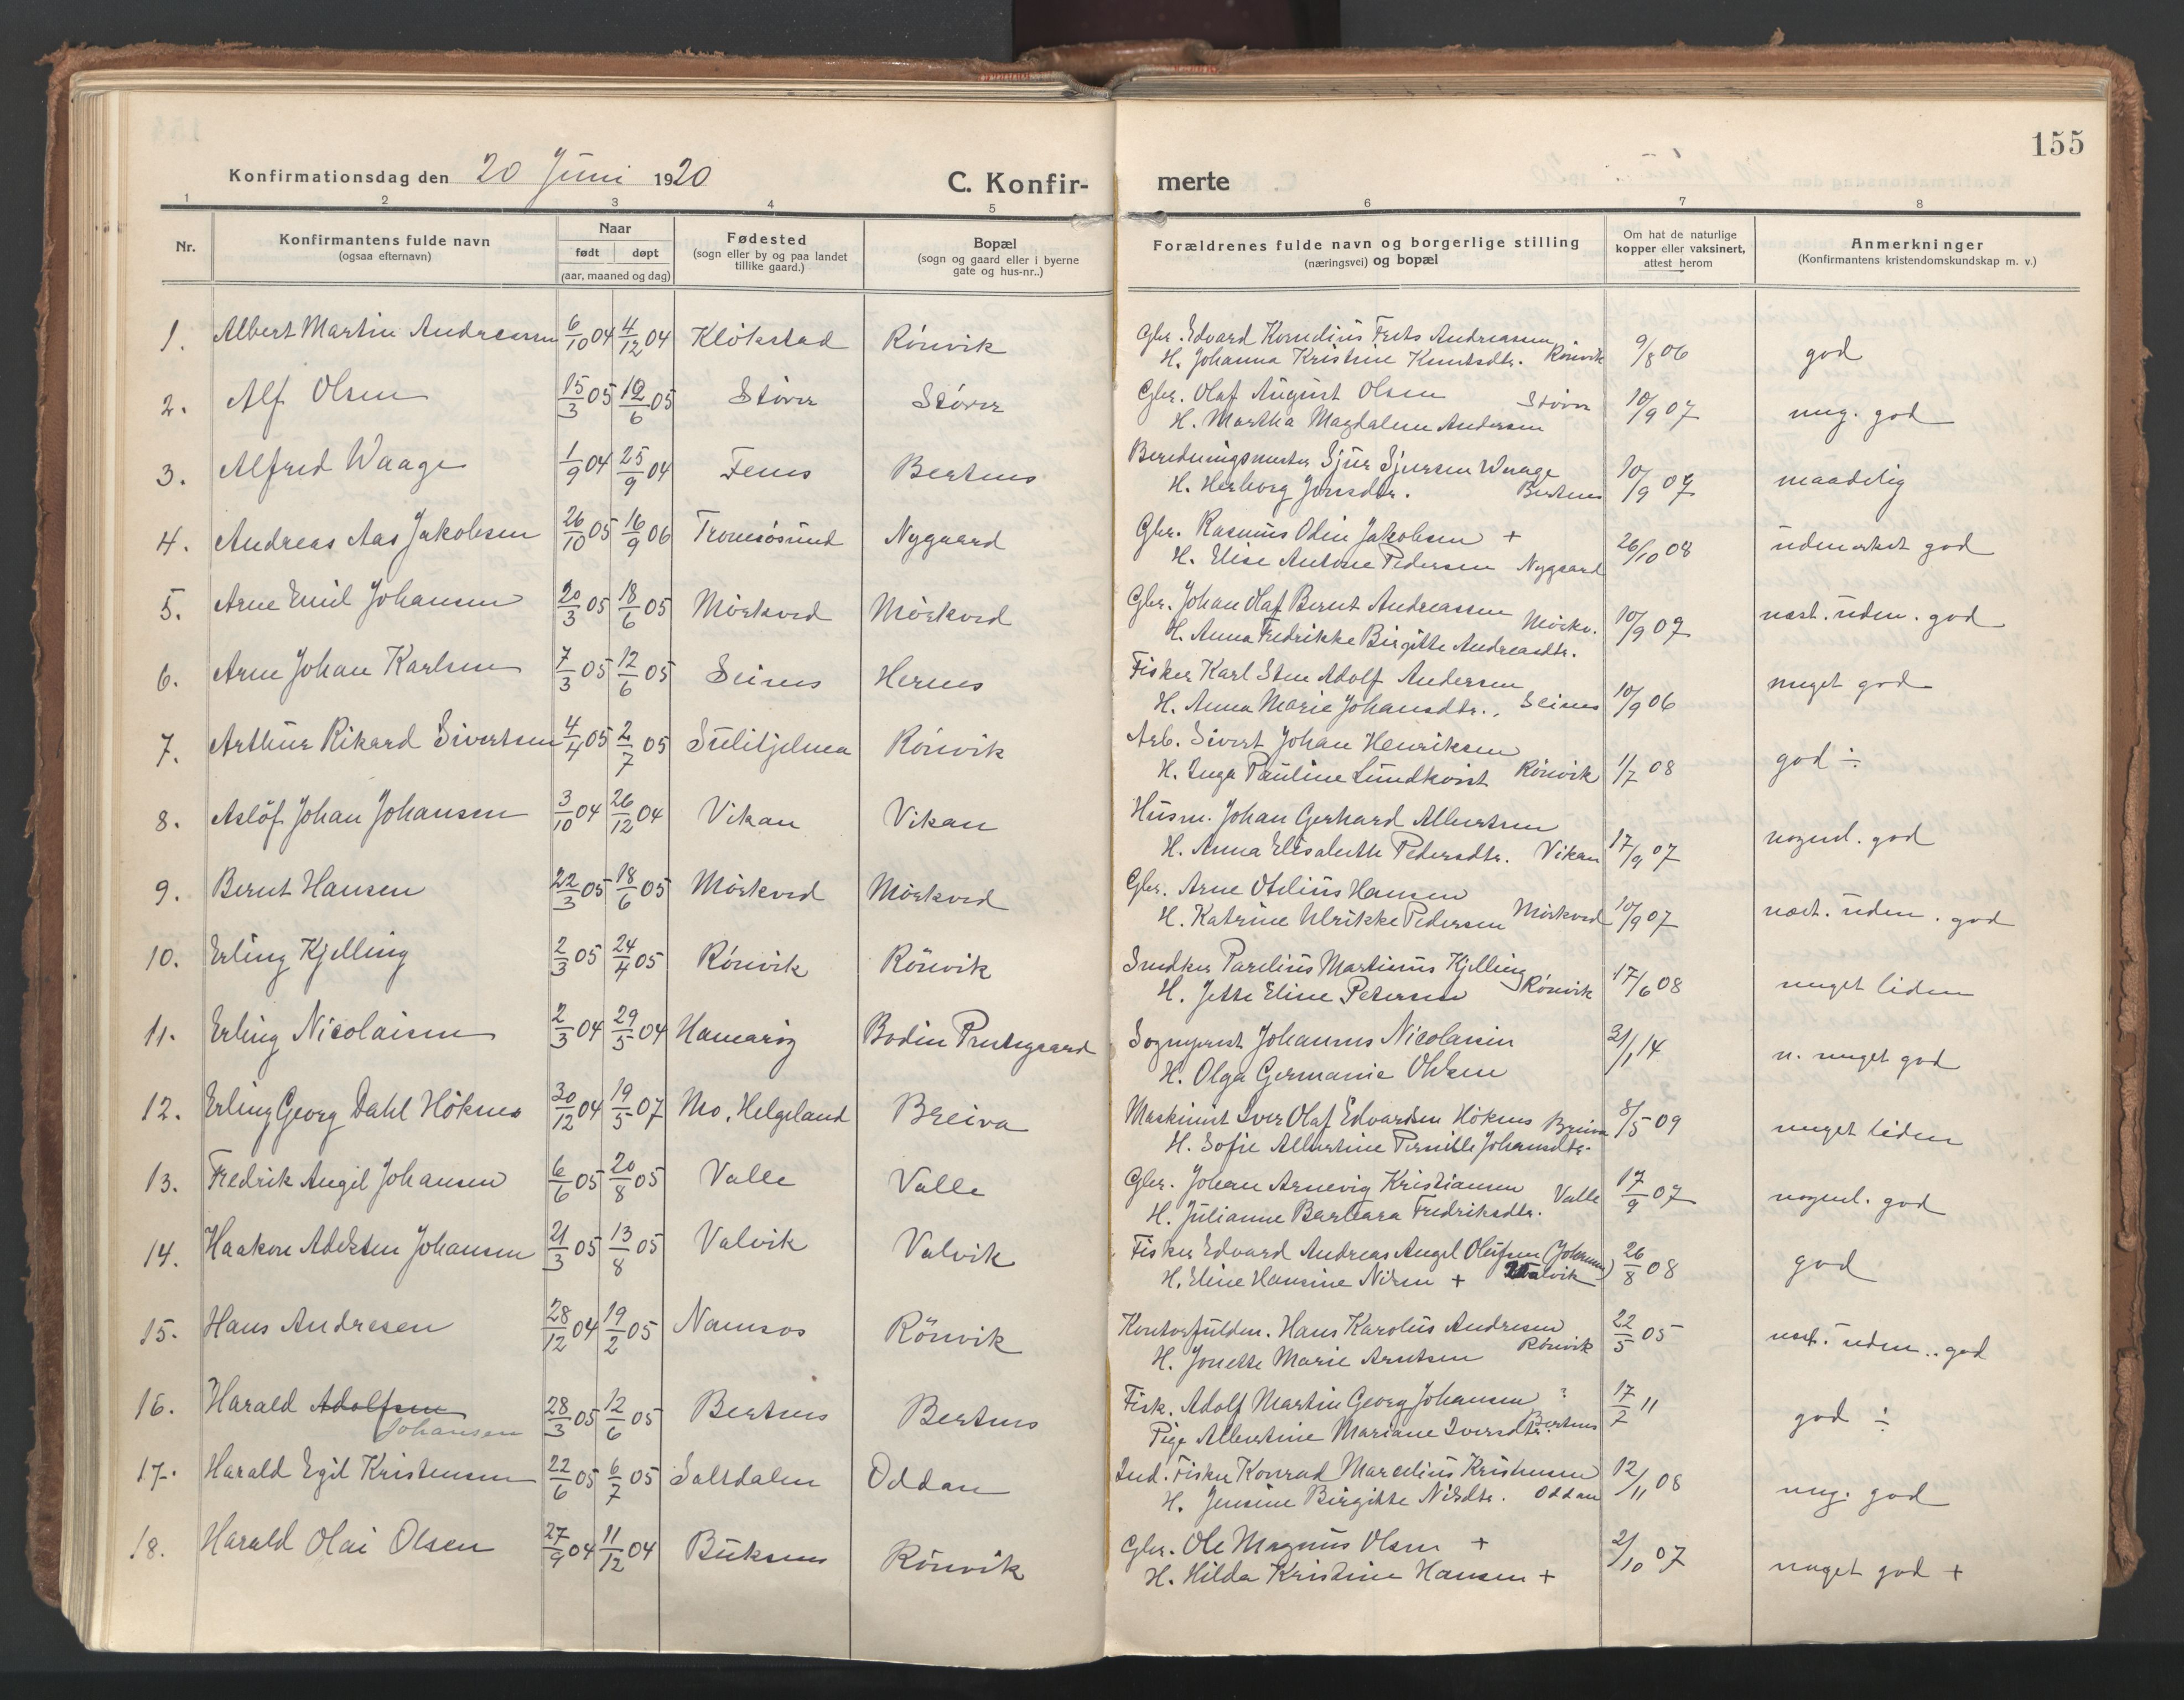 155
Konfirmationsdag den 20 Juni 1920
C. Konfir-
merte
1 2 3 4 5 6 7 8
Nr.
Konfirmantens fulde navn
(ogsaa efternavn)
Naar
født døpt
(aar, maaned og dag)
Fødested
(sogn eller by og paa landet
tillike gaard.)
Bopæl
(sogn og gaard eller i byerne
gate og hus-nr..)
Forældrenes fulde navn og borgerlige stilling
(næringsvei) og bopæl
Om hat de naturlige
kopper eller vaksinert,
attest herom
Anmerkninger
(Konfirmantens kristendomskundskap m. v.)
1. Albert Martin Andreassen 6/10 04 4/12 04 Klökstad Rönvik Gbr. Edvard Kornelius Frits Andreassen 9/8 06 god
H. Johanna Kristine Knutsdtr. Rönvik
2. Alf Olsen 15/3 05 12/6 05 Störer Störer Gbr. Olaf August Olsen Störer 10/9 07 meg. god
H. Martha Magdalene Andersen
3. Alfred Waage 1/9 04 25/9 04 Fenes Bertnes Beredningsmester Sjur Sjursen Waage 10/9 07 maadelig
H. Herborg Jonsdtr. Bertnes
4. Andreas Aas Jakobsen 26/10 05 16/9 06 Tromsösund Nygaard Gbr. Rasmus Odin Jakobsen + 26/10 08 udmerket god
H. Elise Antone Pedersen Nygaard
5. Arne Emil Johansen 20/3 05 18/6 05 Mörkved Mörkved Gbr. Johan Olaf Bernt Andreassen Mörkv. 10/9 07 næst. udm. god
H. Anna Fredrikke Birgitte Andreasdtr.
6. Arne Johan Karlsen 7/3 05 12/6 05 Seines Hernes Fisker Karl Sten Adolf Andersen 10/9 06 meget god
H. Anna Marie Johansdtr., Seines
7. Arthur Rikard Sivertsen 4/4 05 2/7 05 Sulitjelma Rönvik Arb. Sivert Johan Henriksen 1/7 08 god ÷
H. Inga Pauline Lundkvist Rönvik
8. Aslöf Johan Johansen 3/10 04 26/12 04 Vikan Vikan Husm. Johan Gerhard Albertsen 17/9 07 nogenl. god
H. Anna Elisabeth Pedersdtr. Vikan
9. Bernt Hansen 22/3 05 18/6 05 Mörkved Mörkved Gbr. Arne Otelius Hansen 10/9 07 næst. udm. god
H. Katrine Ulrikke Pedersen Mörkved
10. Erling Kjelling 2/3 05 24/4 05 Rönvik Rönvik Snedker Parelius Martinus Kjelling 17/6 08 meget liden
H. Jette Eline Petersen Rönvik
11. Erling Nicolaisen 2/3 04 29/5 04 Hamaröy Bodin Prestegaard Sogneprest Johannes Nicolaisen 31/1 14 n. meget god
H. Olga Germanie Ohlsen
12. Erling Georg Dahl Höknes 30/12 04 19/5 07 Mo, Helgeland Breiva Maskinist Iver Olaf Edvardsen Höknes Breiva 8/5 09 meget liden
H. Sofie Albertine Pernille Johansdtr.
13. Fredrik Angel Johansen 6/6 05 20/8 05 Valle Valle Gbr. Johan Arnevig Kristiansen Valle 17/9 07 nogenl. god
H. Julianne Barbara Fredriksdtr.
14. Haakon Adelsten Johansen 21/3 05 13/8 05 Valvik Valvik Fisker Edvard Andreas Angel Olufsen (Johansen) 26/8 08 god
H. Eline Hansine Nilsen + Valvik
15. Hans Andresen 28/12 04 19/2 05 Namsos Rönvik Kontorfuldm. Hans Karolus Andresen 22/5 05 næst. udm. god
H. Jonette Marie Arntsen Rönvik
16. Harald Adolfsen 28/3 05 12/6 05 Bertnes Bertnes Fisk. Adolf Martin Georg Johansen ? 17/7 11 god ÷
Johansen Pige Albertine Mariane Iversdtr. Bertnes
17. Harald Egil Kristensen 22/6 05 6/7 05 Saltdalen Oddan Ind. Fisker Konrad Marcelius Kristensen 12/11 08 meg. god
H. Jensine Birgitte Nilsdtr. Oddan
18. Harald Olai Olsen 27/9 04 11/12 04 Buksnes Rönvik Gbr. Ole Magnus Olsen + 2/10 07 meget god +
H. Hilda Kristine Hansen +